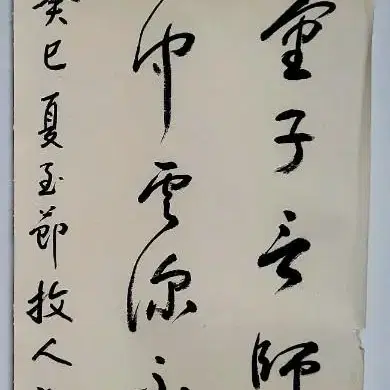 童子言師
中雲深不
癸巳夏至節牧人